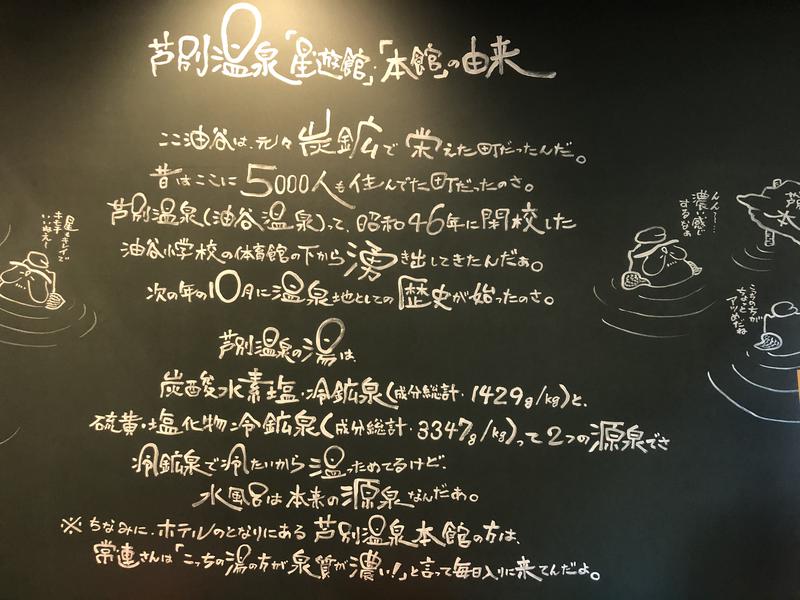 芦別温泉「星遊館」・「本館」の由来
ここ油谷は、元々炭鉱で栄えた町だったんだ。
昔はここに5000人も住んでた町だったのさ。
芦別温泉(油谷温泉)って、昭和46年に閉校した
油谷小学校の体育館の下から湧き出してきたんだぁ。
次の年の10月に温泉地としての歴史が始ったのさ。
芦別温泉の湯は、
炭酸水素塩・冷鉱泉(成分総計・1429g/kg)と、
硫黄・塩化物冷鉱泉(成分総計・3347g/kg)って2つの源泉でさ
冷鉱泉で冷たいから温っためてるけど、
水風呂は本来の源泉なんだぁ。
※ちなみに、ホテルのとなりにある芦別温泉本館の方は、
常連さんは「こっちの湯の方が泉質が濃い!」と言って毎日入りに来てんだよ。
星もキレイで
いいねえ〜
んん〜…
濃い感じ
するなぁ
芦
本
こっちの方が
ちょっと
アツめだね